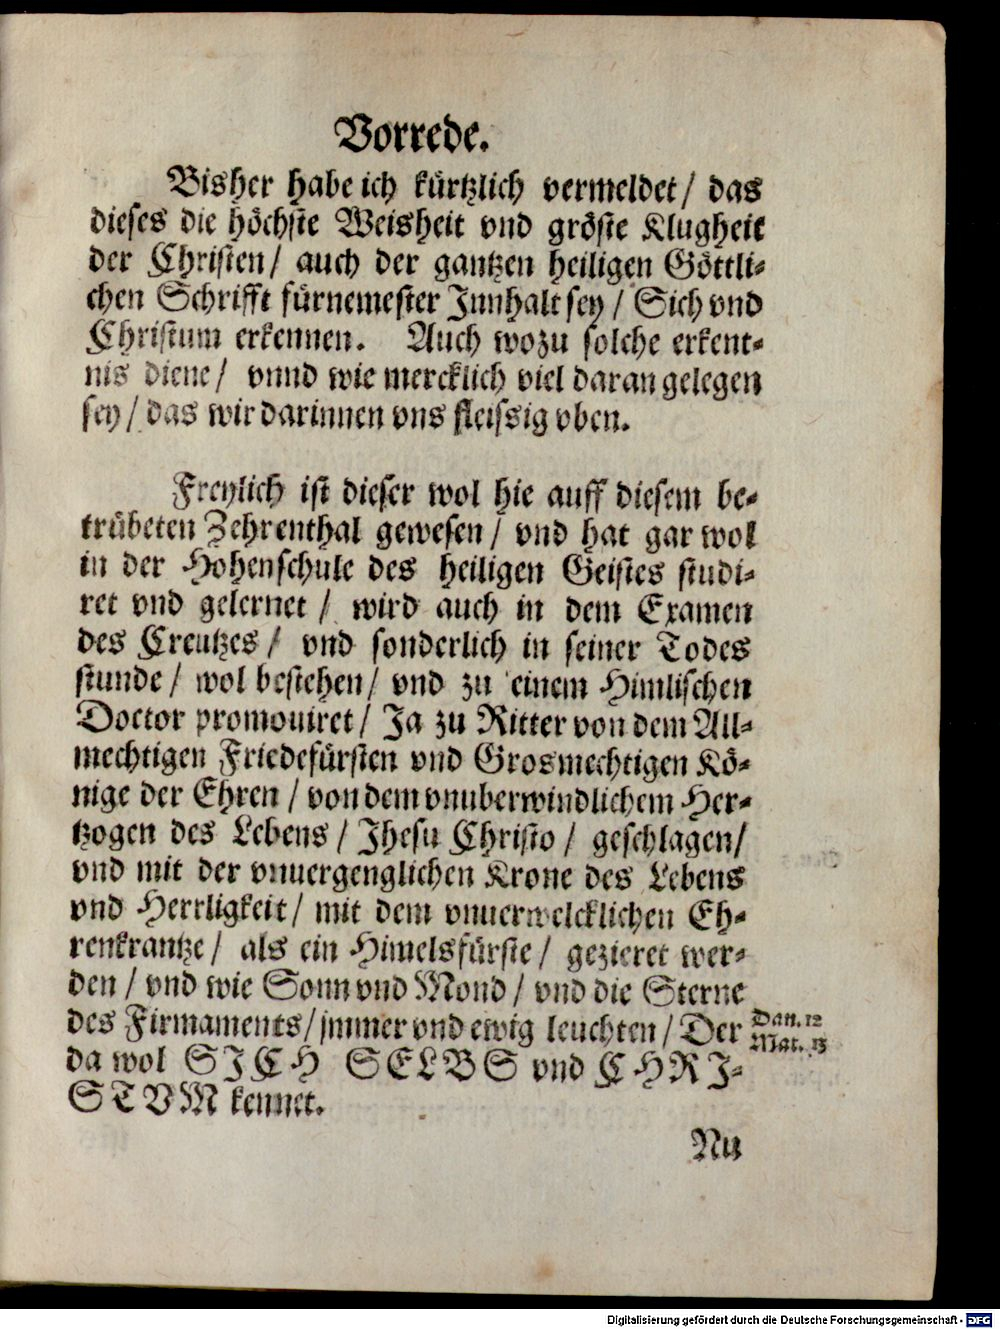 Vorrede.
Bisher habe ich kürtzlich vermeldet / das
dieses die höchste Weisheit vnd gröste Klugheit
der Christen / auch der gantzen heiligen Göttli-
chen Schrifft fürnemester Innhalt sey / Sich vnd
Christum erkennen. Auch wozu solche erkent-
nis diene / vnnd wie mercklich viel daran gelegen
sey / das wir darinnen vns fleissig vben.
Freylich ist dieser wol hie auff diesem be-
trübeten Zehrenthal gewesen / vnd hat gar wol
in der Hohenschule des heiligen Geistes studi-
ret vnd gelernet / wird auch in dem Examen
des Creutzes / vnd sonderlich in seiner Todes
stunde / wol bestehen / vnd zu einem Himlischen
Doctor promouiret / Ja zu Ritter von dem All-
mechtigen Friedefürsten vnd Grosmechtigen Kö-
nige der Ehren / von dem vnuberwindlichem Her-
tzogen des Lebens / Jhesu Christo / geschlagen /
vnd mit der vnuergenglichen Krone des Lebens
vnd Herrligkeit / mit dem vnuerwelcklichen Eh-
renkrantze / als ein Himelsfürste / gezieret wer-
den / vnd wie Sonn vnd Mond / vnd die Sterne
des Firmaments / jmmer vnd ewig leuchten / Der
Dan. 12
Mat. 13
da wol SICH SELBS vnd CHRI-
STVM kennet.
Nu
Digitalisierung gefördert durch die Deutsche Forschungsgemeinschaft - DFG